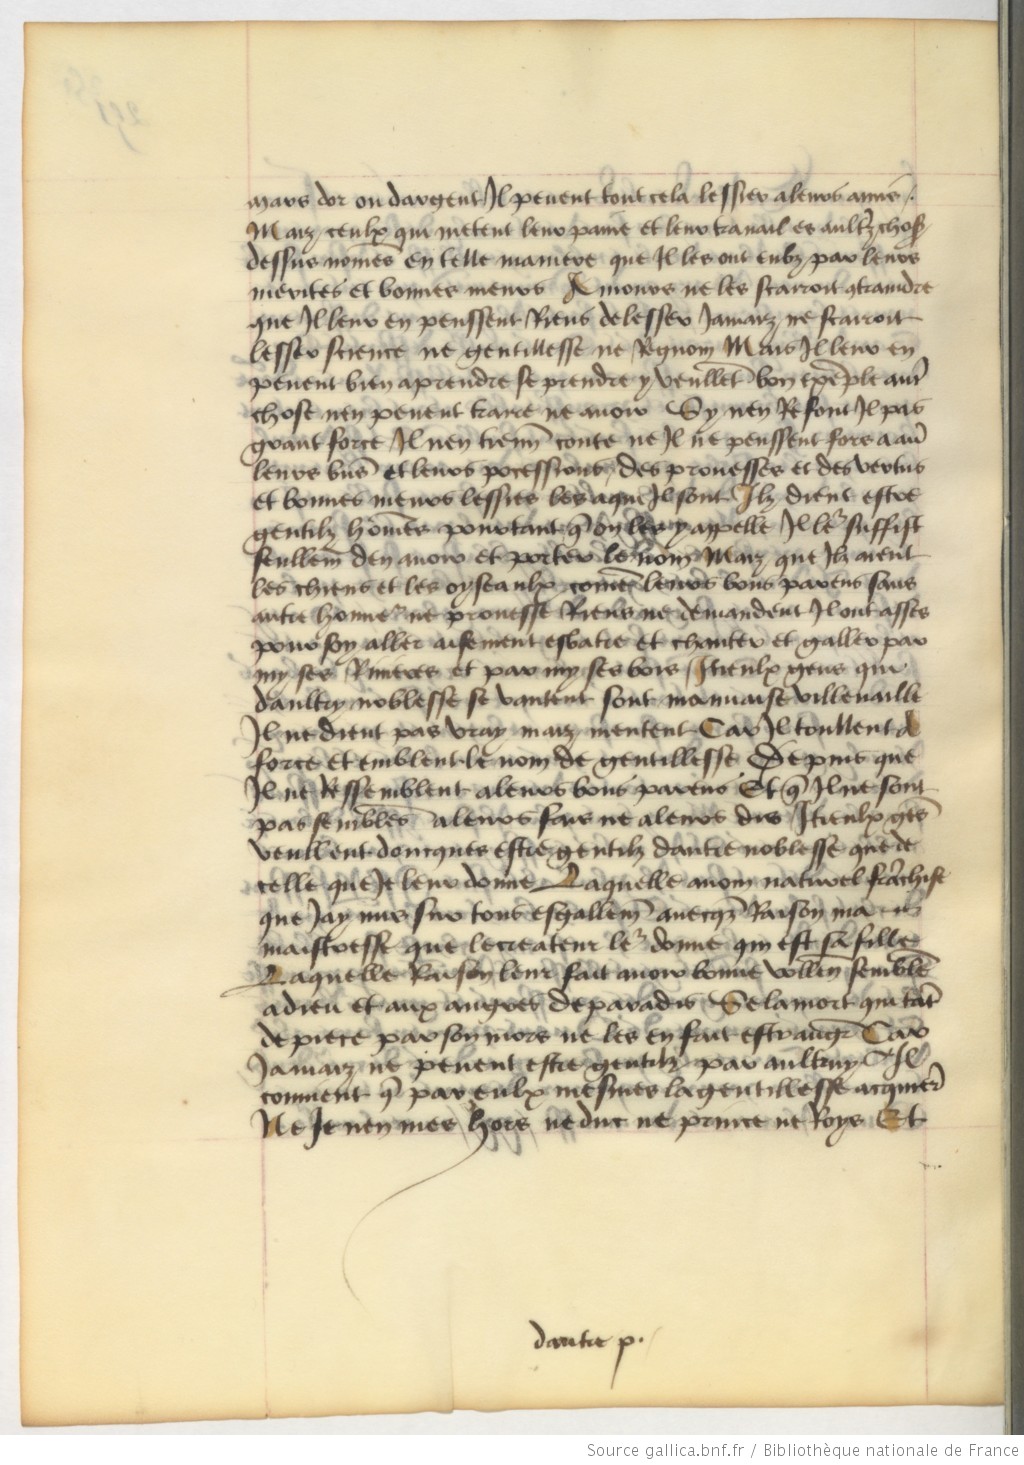 mars dor ou dargent Il peuent tout cela lessier a leurs amis
Maiz ceulx qui metent leur paine et leur travail es aultz chos
dessus nomes en telle maniere que Il les ont eubz par leurs
merites et bonnes meurs Amours ne les scarroit gtraindre
que Il leur en peussent Riens delesser Jamaiz ne scarroit
lesser science ne gentillesse ne Regnom Mais Il leur en
peuent bien aprendre se prendre y veullet bon exeple aut
chose nen peuent traire ne auoir Sy nen Refont Il pas
grant force Il nen tienn conte ne Il ne peussent fors a au
leurs bns et leurs pocessions des prouesses et des vertus
et bonnes meurs lessies les a qui Ilz sont Ilz dient estre
gentilz homes pourtant q on les y apelle Il le suffist
seullem den auoir et porter le nom Maiz que Ilz aient
les chiens et les oyseaulx come leurs bons parens sans
autre honne ne prouesse Riens ne demandent Il ont asses
pour soy aller aisement esbatre et chanter et galler par
my ses Riuieres et par my ses bois Itieulx gens qui
daultry noblesse se vantent sont mauuaise villenaille
Il ne dient pas vray maiz mentent Car Il toullent a
force et emblent le nom de gentillesse Depuis que
Il ne Ressemblent a leurs bons parens Et q Il ne sont
pas sembles a leurs fais ne a leurs dis Itieulx ges
veullent doncques estre gentilz dautre noblesse que de
celle que Je leur donne Laquelle a nom naturel frachise
que Jay mis sur tous esgallem auecqz Raison ma
maistresse que le createur le donne qui est sa fille
Laquelle Raison leur fait auoir bonne vollen semble
a dieu et aux anges de paradis Se la mort qui
de piece par son mors ne les en fait estrang Car
Jamaiz ne peuent estre gentilz par aultruy Il
conuient q par eulx mesmes la gentillesse acquier
Ne Je nen mes hors ne duc ne prince ne Roys Et
dautre p.
Source gallica.bnf.fr / Bibliothèque nationale de France